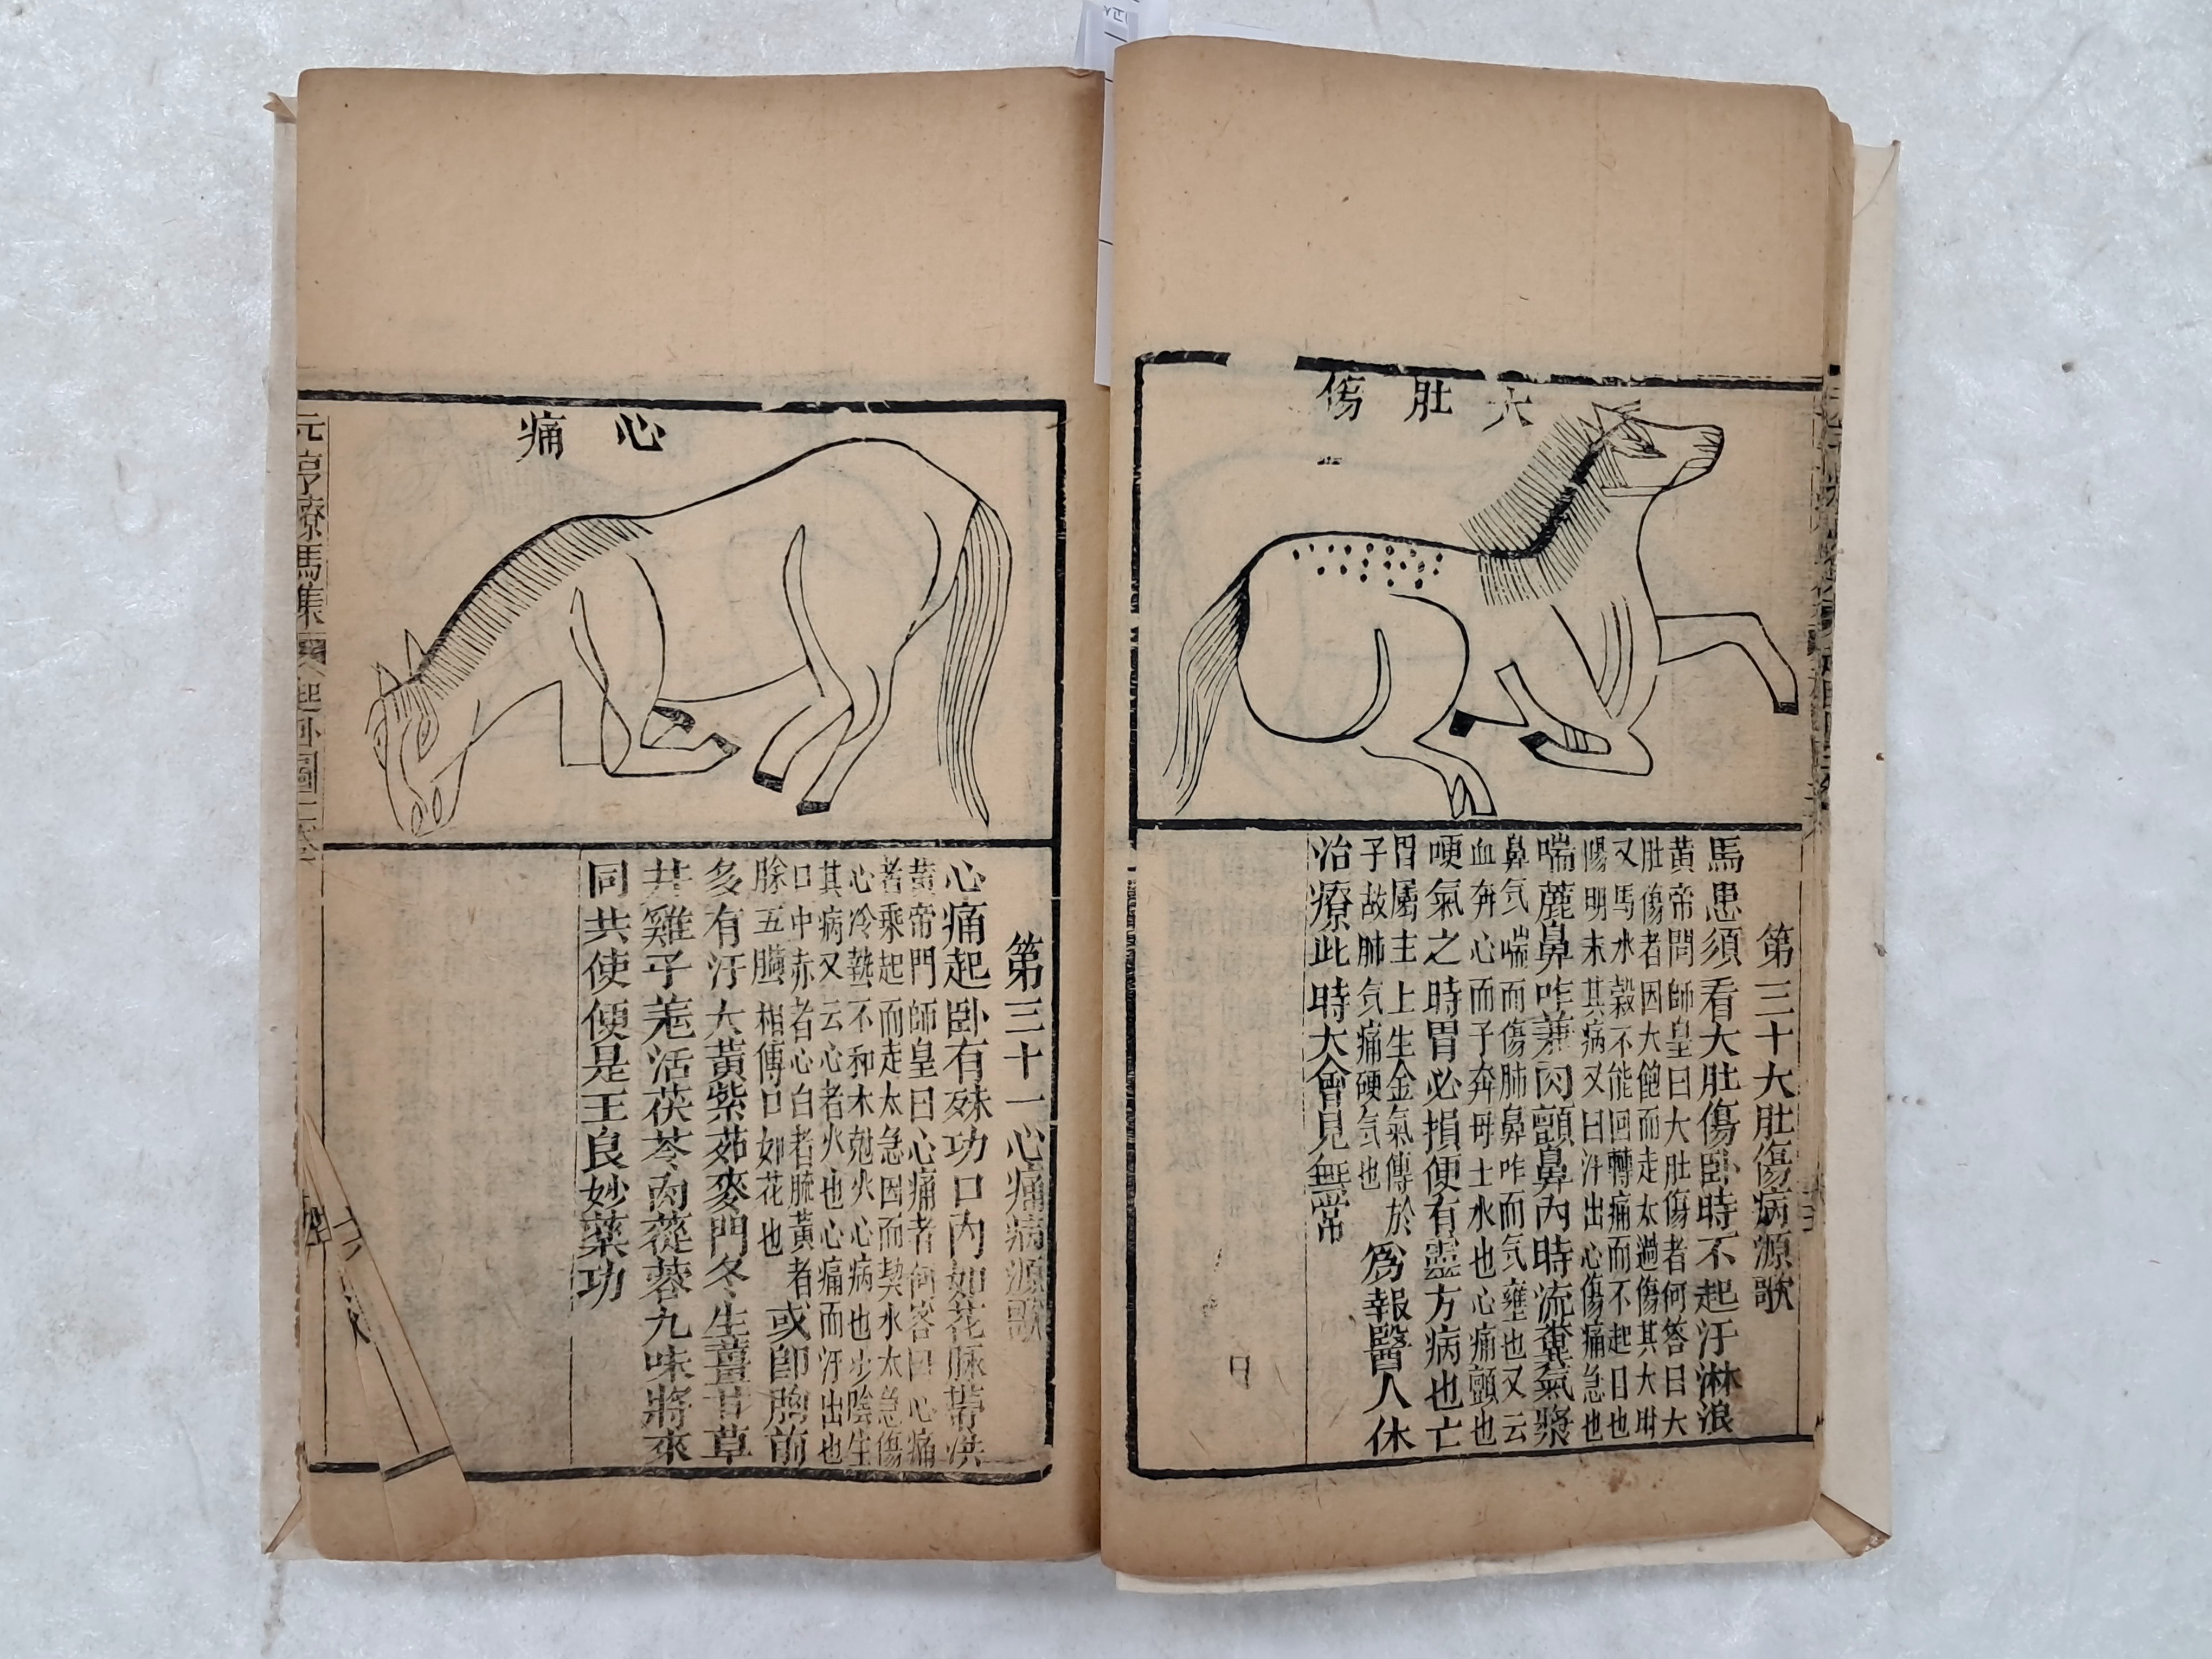 大肚傷
第三十大肚傷病源歌
馬患須看大肚傷卧時不起汗淋浪
黃帝問師皇曰大肚傷者何答曰大
肚傷者因大飽而走太過傷其大肚
又馬水穀不能回轉痛而不起日也
陽明末其病又曰汁出心傷痛急也
喘麄鼻咋兼肉顫鼻內時流糞氣漿
鼻气喘而傷肺鼻咋而气壅也又云
血奔心而子奔母土水也心痛顫也
哽氣之時胃必損便有靈方病也亡
胃屬主上生金氣傳於
子故肺气痛硬气也
為報醫人休
治療此時大會見無常
心痛
第三十一心痛病源歌
心痛起卧有殊功口內如花脉帶洪
黃帝門師皇曰心痛者何答曰心痛
者乘起而走太急因而契水太急傷
心冷執不和木尅火心病也少陰生
其病又云心者火也心痛而汗出也
口中赤者心白者肺黃者
脉五臟相傳口如花也
或卽胸前
多有汗大黃紫菀麥門冬生薑甘草
并雞子羌活茯苓肉蓯蓉九味將來
同共使便是王良妙藥功
元亨療馬集
起卧圖二卷